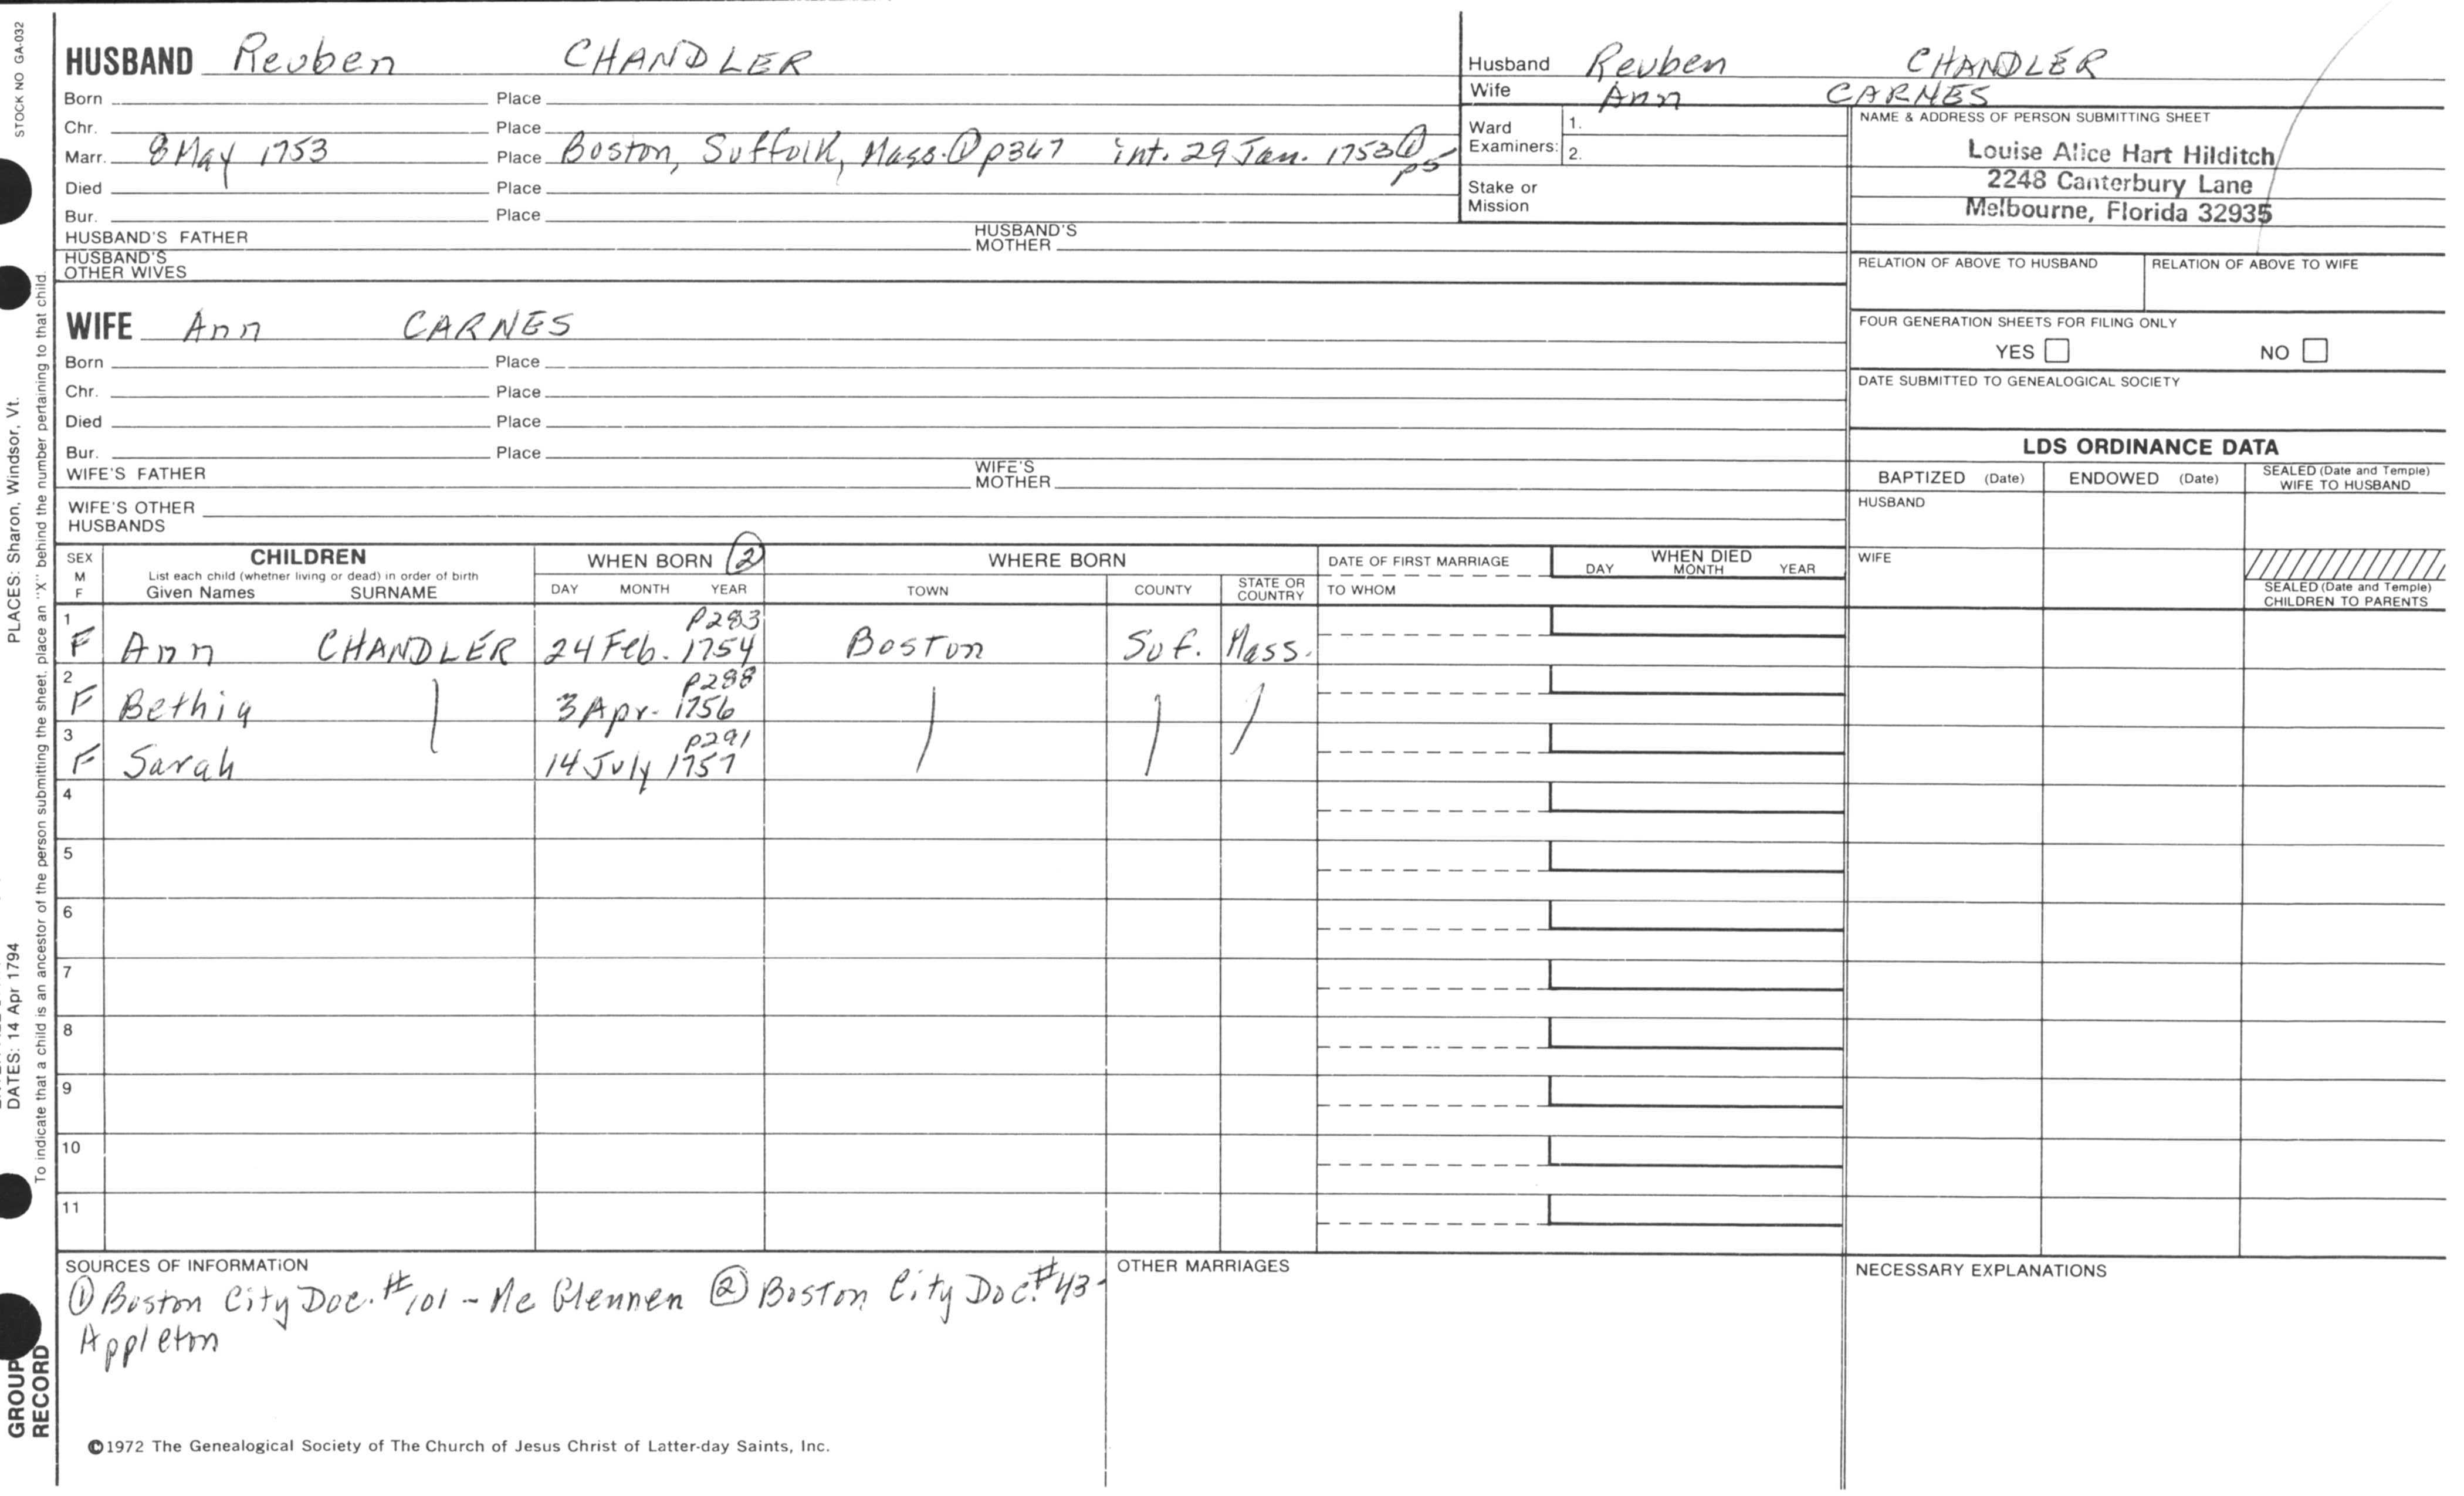 STOCK NO GA-032
PLACES: Sharon, Windsor, Vt.
DATES: 14 Apr 1794
To indicate that a child is an ancestor of the person submitting the sheet, place an "X" behind the number pertaining to that child.
GROUP
RECORD
HUSBAND Reuben CHANDLER
Born Place
Chr. Place
Marr. 8 May 1753 Place Boston, Suffolk, Mass. ① p347 int. 29 Jan. 1753 ① p5
Died Place
Bur. Place
HUSBAND'S FATHER HUSBAND'S MOTHER
HUSBAND'S
OTHER WIVES
Husband Reuben CHANDLER
Wife Ann CARNES
Ward
Examiners: 1.
2.
Stake or
Mission
NAME & ADDRESS OF PERSON SUBMITTING SHEET
Louise Alice Hart Hilditch
2248 Canterbury Lane
Melbourne, Florida 32935
RELATION OF ABOVE TO HUSBAND RELATION OF ABOVE TO WIFE
FOUR GENERATION SHEETS FOR FILING ONLY
YES NO
DATE SUBMITTED TO GENEALOGICAL SOCIETY
WIFE Ann CARNES
Born Place
Chr. Place
Died Place
Bur. Place
WIFE'S FATHER WIFE'S MOTHER
WIFE'S OTHER
HUSBANDS
LDS ORDINANCE DATA
BAPTIZED (Date) ENDOWED (Date) SEALED (Date and Temple) WIFE TO HUSBAND
HUSBAND
WIFE
SEALED (Date and Temple)
CHILDREN TO PARENTS
SEX
M
F
CHILDREN
List each child (whether living or dead) in order of birth
Given Names SURNAME
WHEN BORN ②
DAY MONTH YEAR
WHERE BORN
TOWN COUNTY STATE OR COUNTRY
DATE OF FIRST MARRIAGE
TO WHOM
WHEN DIED
DAY MONTH YEAR
1 p283
F Ann CHANDLER 24 Feb. 1754 Boston Suf. Mass.
2 p288
F Bethia 3 Apr. 1756
3 p291
F Sarah 14 July 1757
4
5
6
7
8
9
10
11
SOURCES OF INFORMATION
① Boston City Doc. #101 - Mc Glennen ② Boston City Doc. #43 -
Appleton
OTHER MARRIAGES
NECESSARY EXPLANATIONS
©1972 The Genealogical Society of The Church of Jesus Christ of Latter-day Saints, Inc.